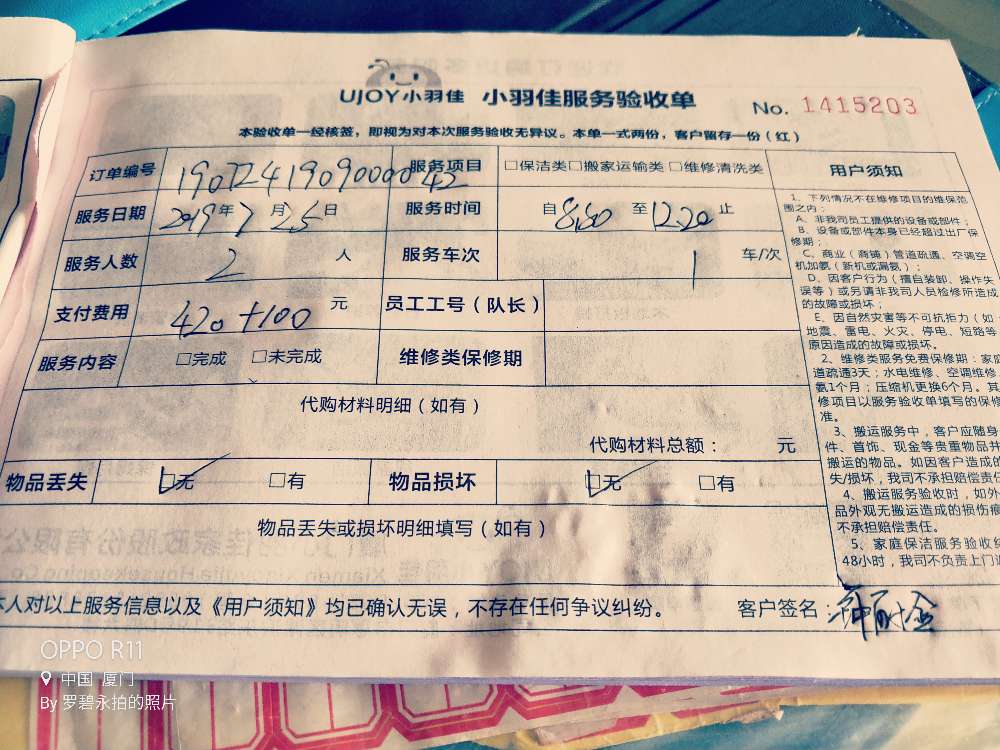 UJOY小羽佳 小羽佳服务验收单 No. 1415203
本验收单一经核签，即视为对本次服务验收无异议。本单一式两份，客户留存一份（红）
订单编号 19072419090000042 服务项目 □保洁类□搬家运输类 □维修清洗类 用户须知
服务日期 2019年7月25日 服务时间 自8:30至12:20止
服务人数 2人 服务车次 1车/次
支付费用 420+100元 员工工号（队长）
服务内容 □完成 □未完成 维修类保修期
代购材料明细（如有）
代购材料总额： 元
物品丢失 ☑无 □有 物品损坏 ☑无 □有
物品丢失或损坏明细填写（如有）
本人对以上服务信息以及《用户须知》均已确认无误，不存在任何争议纠纷。 客户签名：
1、下列情况不在维修项目的维保范
围之内：
A、非我司员工提供的设备或部件；
B、设备或部件本身已经超过出厂保
修期；
C、商业（商铺）管道疏通、空调空
机加氨（新机或漏氨）；
D、因客户行为（擅自装卸、操作失
误等）或另请非我司人员检修所造成
的故障或损坏；
E、因自然灾害等不可抗拒力（如
地震、雷电、火灾、停电、短路等
原因造成的故障或损坏。
2、维修类服务免费保修期：家庭
道疏通3天；水电维修、空调维修、
氨1个月；压缩机更换6个月。其
修项目以服务验收单填写的保修
准。
3、搬运服务中，客户应随身
件、首饰、现金等贵重物品并
搬运的物品。如因客户造成的
失/损坏，我司不承担赔偿责任
4、搬运服务验收时，如外
品外观无搬运造成的损伤痕
不承担赔偿责任。
5、家庭保洁服务验收结
48小时，我司不负责上门返
OPPO R11
中国 厦门
By 罗碧永拍的照片